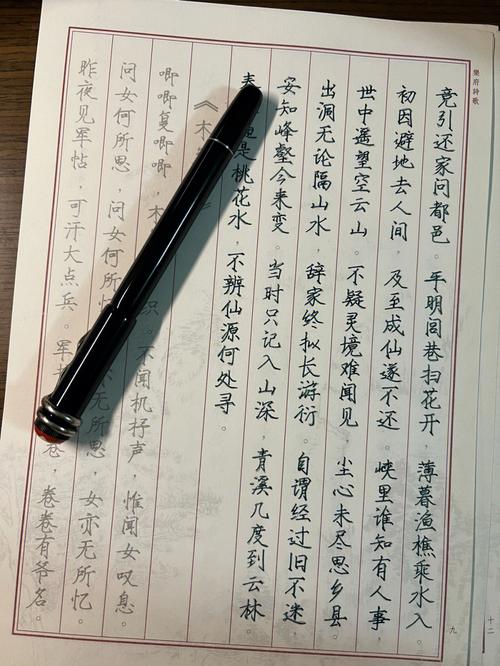 樂府詩歌
竞引还家问都邑。平明闾巷扫花开，薄暮渔樵乘水入。
初因避地去人间，及至成仙遂不还。峡里谁知有人事，
世中遥望空云山。不疑灵境难闻见，尘心未尽思乡县。
出洞无论隔山水，辞家终拟长游衍。自谓经过旧不迷，
安知峰壑今来变。当时只记入山深，青溪几度到云林。
春是桃花水，不辨仙源何处寻。
《木
唧唧复唧唧，木织。不闻机杼声，惟闻女叹息。
问女何所思，问女何所忆亦无所思，女亦无所忆。
昨夜见军帖，可汗大点兵。军卷，卷卷有爷名。
九
十二